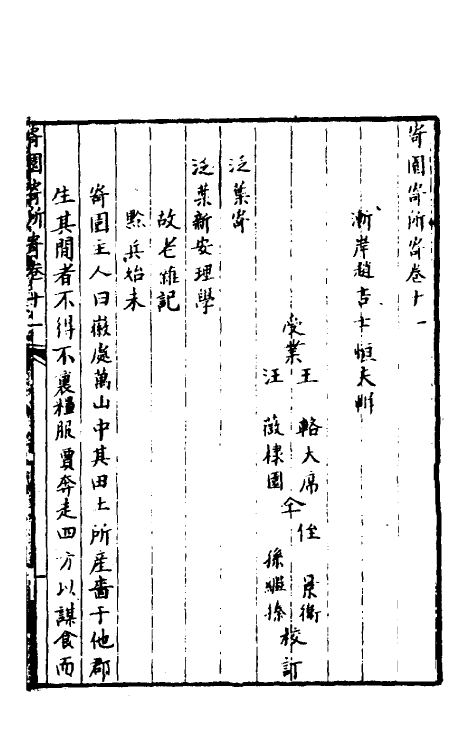 寄園寄所寄卷十一
漸岸趙吉士恒夫輯
受業
王 輅大席
汪 薇棣園
仝
侄 景衡
孫繼抃
校訂
泛葉寄
泛葉新安理學
故老雜記
黟兵始末
寄園主人曰嶶處萬山中其田土所產嗇于他郡
生其間者不得不裹糧服賈奔走四方以謀食而
寄園寄所寄卷十一